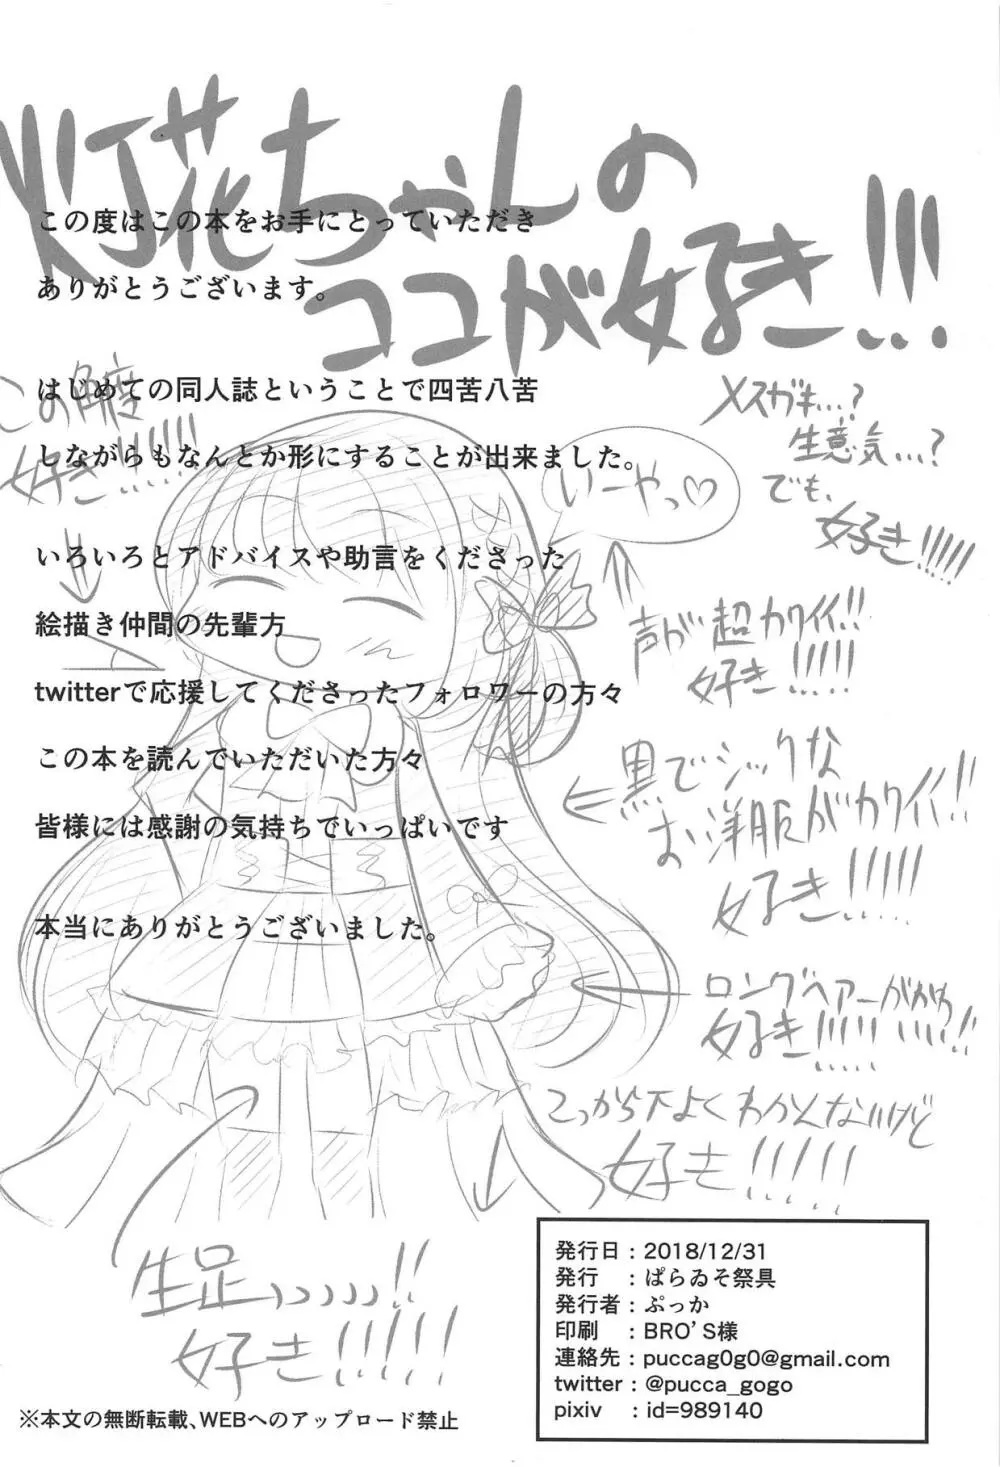 灯花ちゃんの
ココが好き!!!
この度はこの本をお手にとっていただき
ありがとうございます。
はじめての同人誌ということで四苦八苦
しながらもなんとか形にすることが出来ました。
いろいろとアドバイスや助言をくださった
絵描き仲間の先輩方
twitterで応援してくださったフォロワーの方々
この本を読んでいただいた方々
皆様には感謝の気持ちでいっぱいです
本当にありがとうございました。
この角度
好き!!!!!
いーやっ♡
メスガキ...?
生意気...?
でも、
好き!!!!!
声が超カワイイ!!
好き!!!!!
黒でシックな
お洋服がカワイイ!!
好き!!!!!
ロングヘアーがかわ
好き!!!!!
こっから下よくわかんないけど
好き!!!!!
生足
好き!!!!!
発行日：2018/12/31
発行　：ぱらゐそ祭具
発行者：ぷっか
印刷　：BRO'S様
連絡先：puccag0g0@gmail.com
twitter：@pucca_gogo
pixiv　：id=989140
※本文の無断転載、WEBへのアップロード禁止